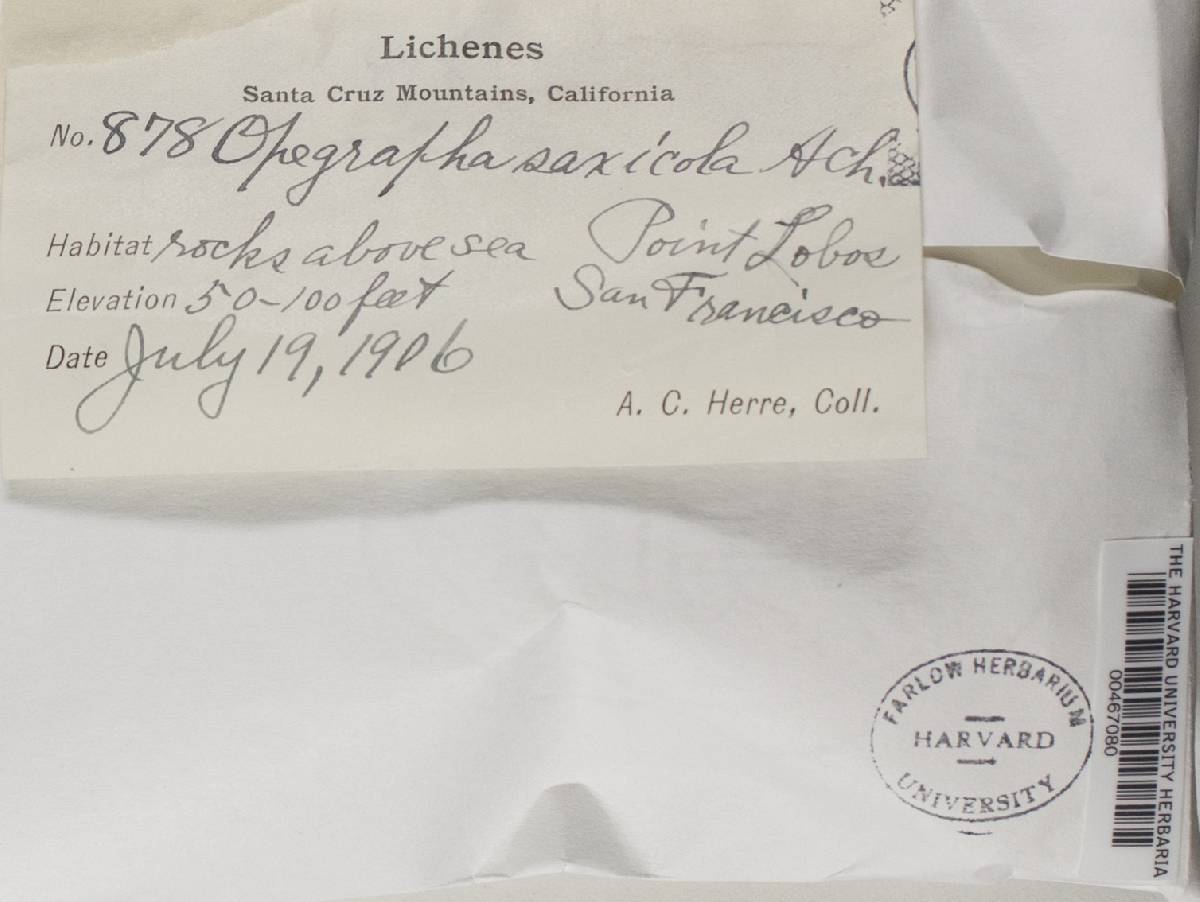 Lichenes
Santa Cruz Mountains, California
No. 878 Opegrapha saxicola Ach.
Habitat rocks above sea Point Lobos
Elevation 50-100 feet San Francisco
Date July 19, 1906
A. C. Herre, Coll.
FARLOW HERBARIUM
HARVARD
UNIVERSITY
THE HARVARD UNIVERSITY HERBARIA
00467080